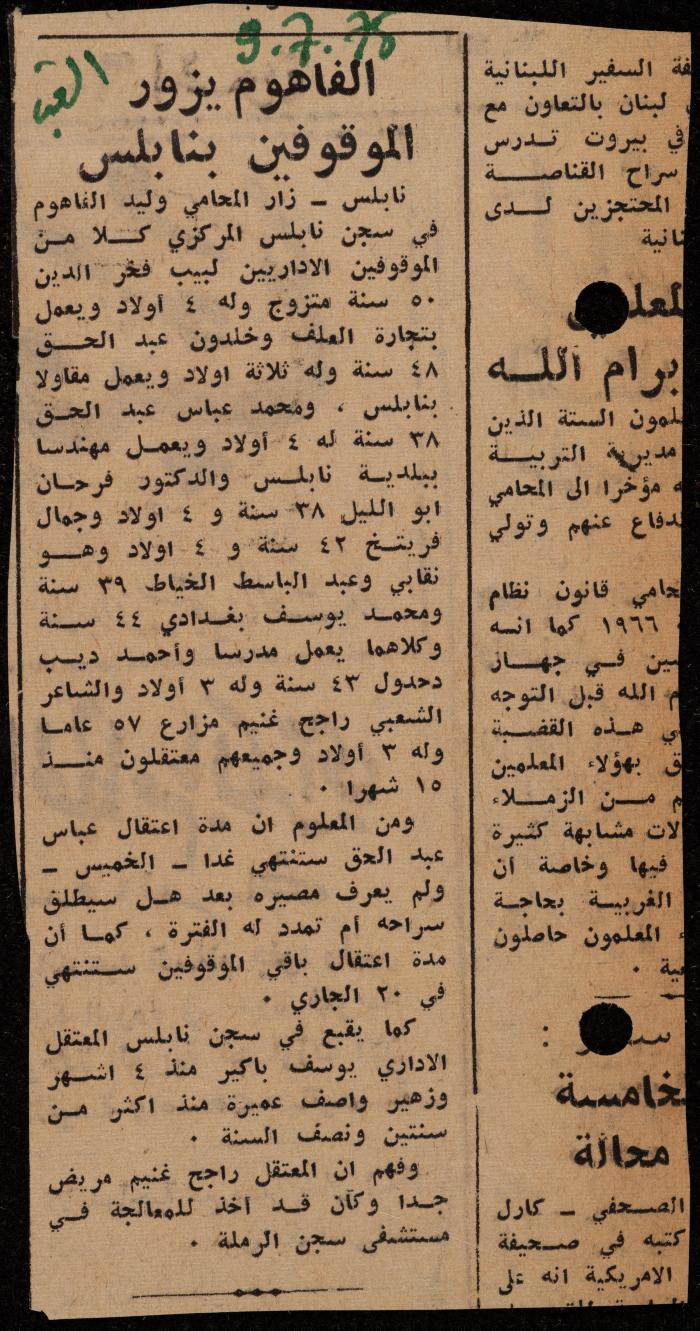 9.7.75
الفاهوم يزور
الموقوفين بنابلس
نابلس ــ زار المحامي وليد الفاهوم
في سجن نابلس المركزي كــلا مــن
الموقوفين الاداريين لبيب فخر الدين
٥٠ سنة متزوج وله ٤ أولاد ويعمل
بتجارة العلف وخلدون عبد الحــق
٤٨ سنة وله ثلاثة اولاد ويعمل مقاولا
بنابلس ، ومحمد عباس عبد الحـق
٣٨ سنة له ٤ أولاد ويعمـل مهندسا
ببلديـة نابلـس والدكتور فرحـان
ابو الليل ٣٨ سنة و ٤ اولاد وجمال
فريتـخ ٤٢ سنة و ٤ اولاد وهــو
نقابي وعبد الباسط الخياط ٣٩ سنة
ومحمـد يوسـف بغـدادي ٤٤ سـنة
وكلاهما يعمل مدرسا وأحمـد ديـب
دحدول ٤٣ سنة وله ٣ أولاد والشاعر
الشعبي راجح غنيم مزارع ٥٧ عامـا
وله ٣ أولاد وجميعهم معتقلون منــذ
١٥ شهرا ٠
ومن المعلوم ان مدة اعتقال عباس
عبد الحق ستنتهي غدا ــ الخميس ــ
ولم يعرف مصيره بعد هـل سيطلق
سراحه أم تمدد له الفترة ، كمـا أن
مدة اعتقال باقي الموقوفين سـتنتهي
في ٢٠ الجاري ٠
كما يقبع في سجن نابلس المعتقل
الاداري يوسف باكير منذ ٤ اشـهر
وزهير واصف عميرة منذ اكثر مـن
سنتين ونصف السنة ٠
وفهم ان المعتقل راجح غنيم مريض
جـدا وكان قـد أخذ للمعالجة فـي
مستشفى سجن الرملة ٠
السفير اللبنانية
لبنان بالتعاون مع
في بيروت تـدرس
سراح القناصــة
المحتجزين لــدى
برام اللــه
الستة الذين
مديرية التربيــة
مؤخرا الى المحامي
عنهم وتولي
قانون نظام
١٩٦٦ كما انـه
فـي جهــاز
الله قبل التوجه
هـذه القضية
بهؤلاء المعلمين
مـن الزمـلاء
مشابهة كثيرة
فيها وخاصة أن
الغربيـة بحاجـة
المعلمون حاصلون
محالة
الصـحفي ــ كارل
كتبه في صـحيفة
الامريكية انه على